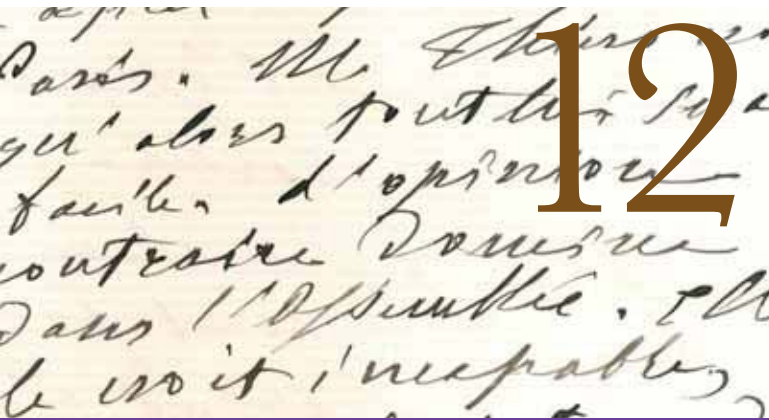 Paris. M. Thiers
qu'alors tout lui
12
facile. d'opinion
contraire domine
dans l'Assemblée.
le croit incapable,